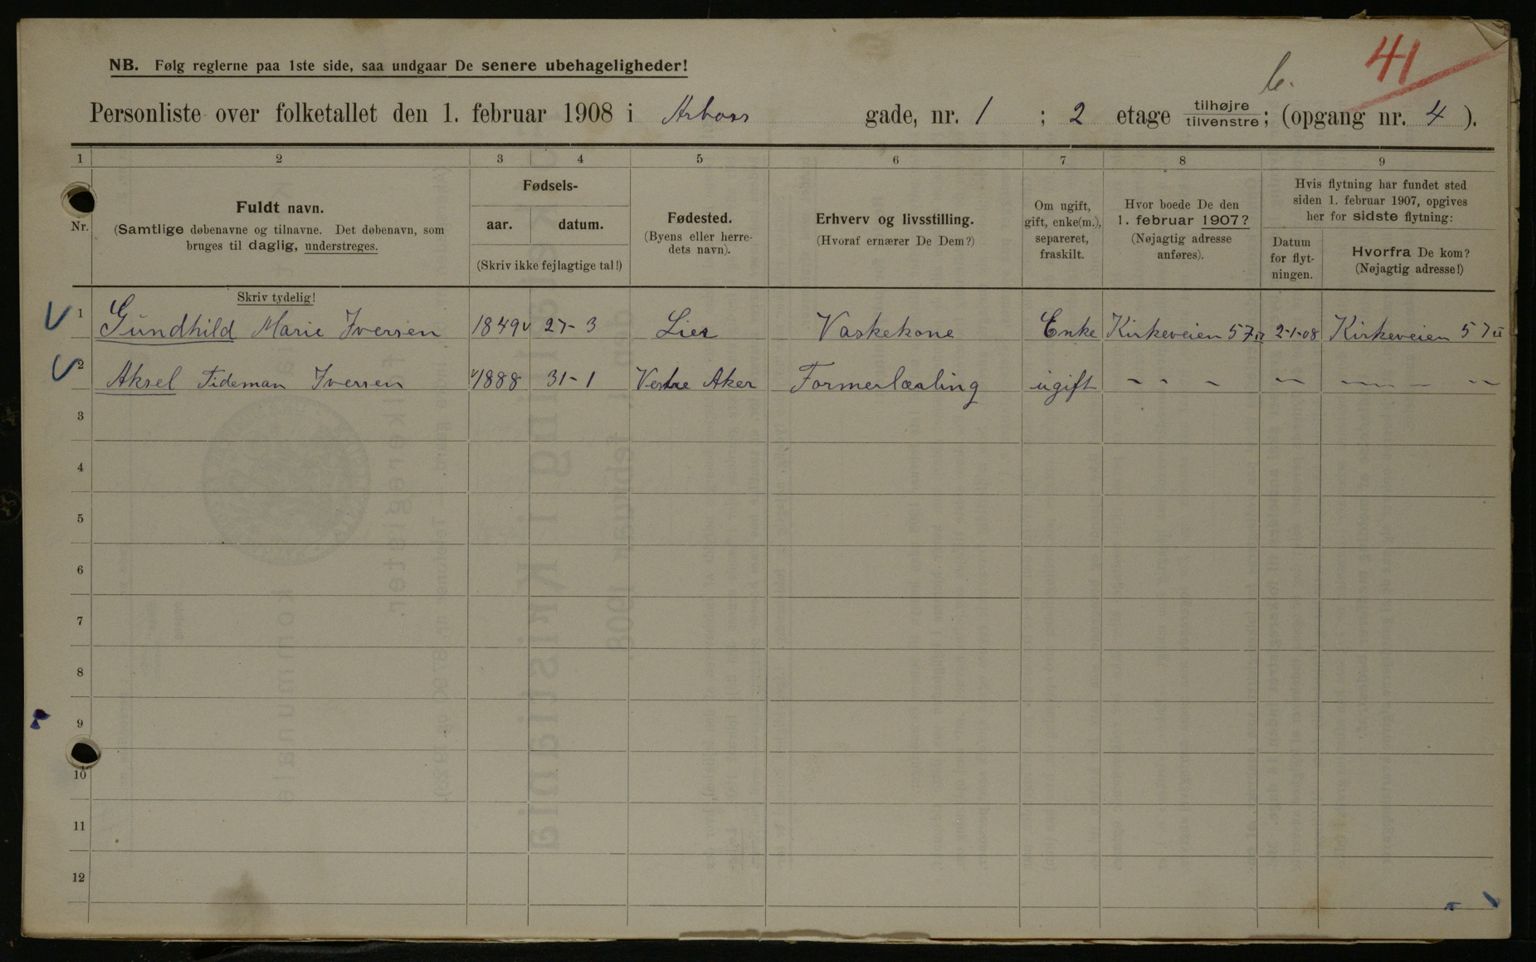 41
b.
NB. Følg reglerne paa 1ste side, saa undgaar De senere ubehageligheder!
Personliste over folketallet den 1. februar 1908 i Arbos gade, nr. 1 ; 2 etage tilhøjre tilvenstre; (opgang nr. 4 ).
1 2 3 4 5 6 7 8 9
Nr.
Fuldt navn.
(Samtlige døbenavne og tilnavne. Det døbenavn, som
bruges til daglig, understreges.
Fødsels-
aar. datum.
(Skriv ikke fejlagtige tal!)
Fødested.
(Byens eller herre-
dets navn).
Erhverv og livsstilling.
(Hvoraf ernærer De Dem?)
Om ugift,
gift, enke(m.),
separeret,
fraskilt.
Hvor boede De den
1. februar 1907?
(Nøjagtig adresse
anføres).
Hvis flytning har fundet sted
siden 1. februar 1907, opgives
her for sidste flytning:
Datum
for flyt-
ningen.
Hvorfra De kom?
(Nøjagtig adresse!)
Skriv tydelig!
1 Gundhild Marie Iversen 1849 27-3 Lier Vaskekone Enke Kirkeveien 57 II 2-1-08 Kirkeveien 57 II
2 Aksel Tideman Iversen 1888 31-1 Vestre Aker Formerlærling ugift - - - -- ---- - --
3
4
5
6
7
8
9
10
11
12